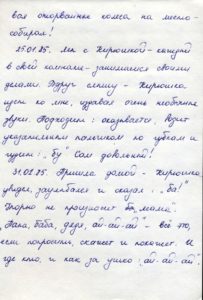 вал оторванные колеса на место-
собирал!
25.01.85. Мы с Кирюшкой - каждый
в своей комнате - занимаемся своими
делами. Вдруг слышу - Кирюшка
идет ко мне, издавая очень необычные
звуки. Подходит: оказывается, водит
указательным пальчиком по губкам и
гудит: "бу" Сам довольный!
31.01.85. Пришла домой - Кирюшка
увидел, заулыбался и сказал: "ба!"
Твором не произносит "мама".
"Папа, баба, деда, ай-ай-ай" - все это,
если попросить, скажет и покажет. И
где кто, и как за ушко "ай-ай-ай".